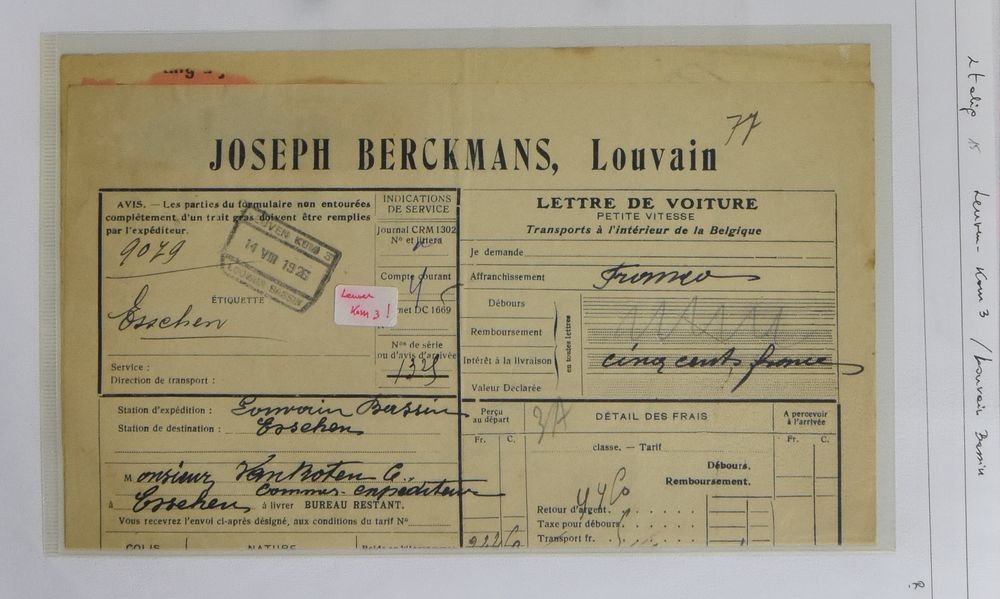 77
JOSEPH BERCKMANS, Louvain
AVIS. — Les parties du formulaire non entourées
complétement d'un trait gras doivent être remplies
par l'expéditeur.
9079
14 VIII 1926
LOUVAIN BASSIN
ÉTIQUETTE
Esschen
Leuven
Kom 3 !
Service :
Direction de transport :
INDICATIONS
DE SERVICE
Journal CRM 1302
Nº et littera
Compte courant
DC 1669
Nos de série
ou d'avis d'arrivée
1325
LETTRE DE VOITURE
PETITE VITESSE
Transports à l'intérieur de la Belgique
Je demande
Affranchissement Franco
Débours
Remboursement
Intérêt à la livraison
Valeur Déclarée
en toutes lettres
cinq cents francs
Station d'expédition : Louvain Bassin
Station de destination : Esschen
Monsieur Van Noten C.
commis-expéditeur
à Esschen à livrer BUREAU RESTANT.
Vous recevrez l'envoi ci-après désigné, aux conditions du tarif Nº
COLIS NATURE
Perçu
au départ
Fr. C.
DÉTAIL DES FRAIS
A percevoir
à l'arrivée
Fr. C.
classe. — Tarif
Débours.
Remboursement.
Retour d'argent.
Taxe pour débours.
Transport fr.
Leuven - Kom 3 / Louvain Bassin